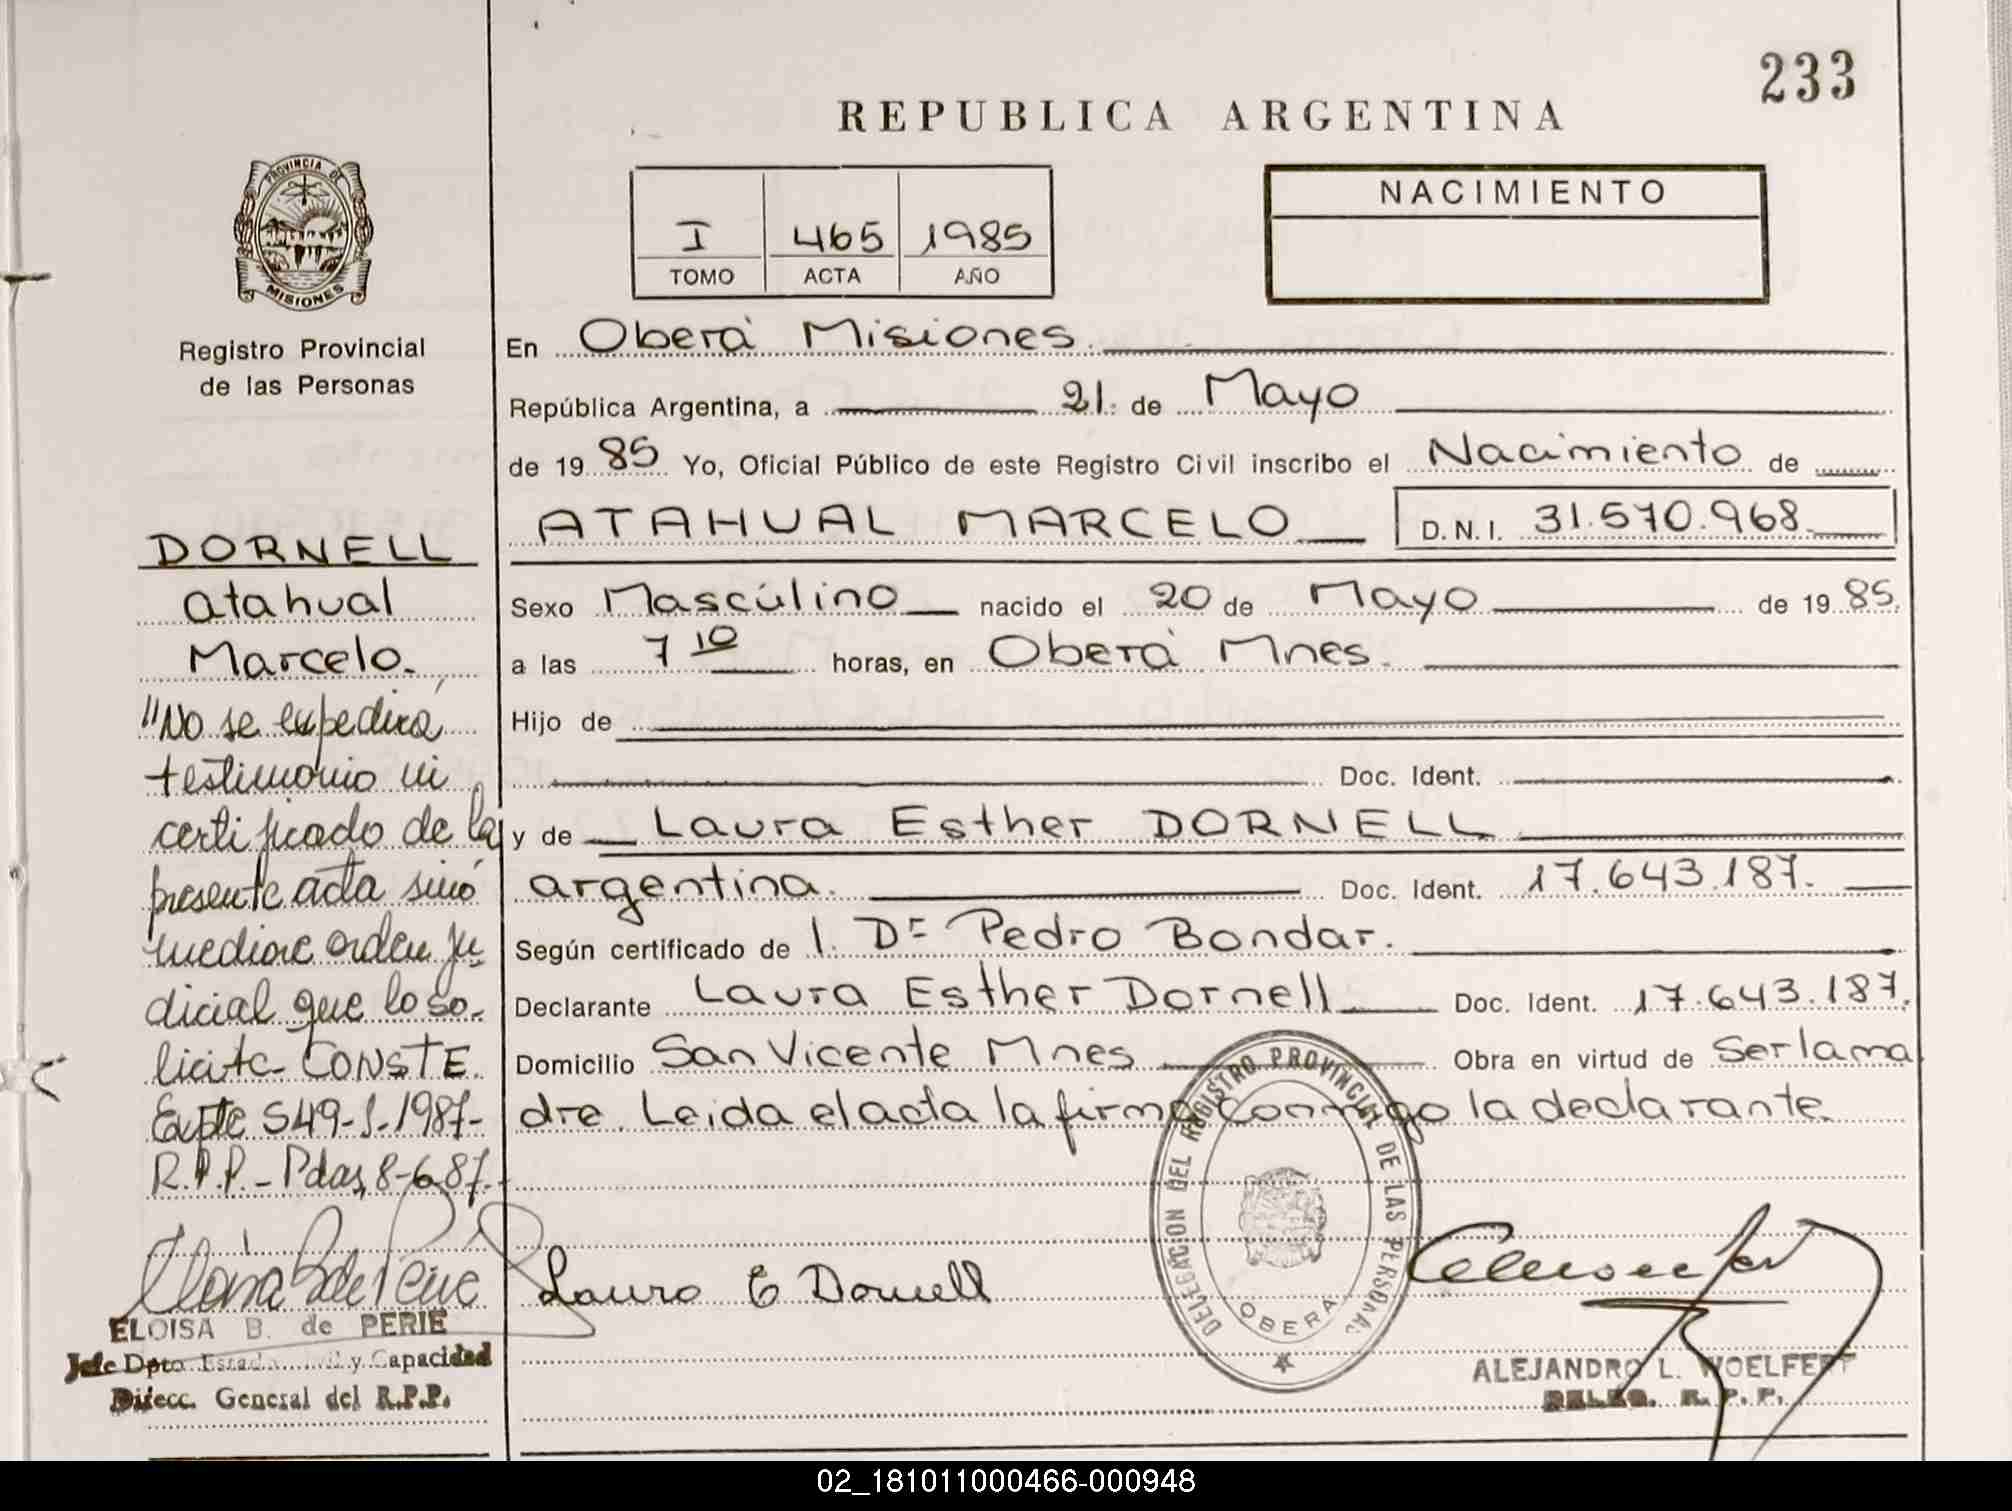 233
REPUBLICA ARGENTINA
PROVINCIA DE
MISIONES
Registro Provincial
de las Personas
I 465 1985
TOMO ACTA AÑO
NACIMIENTO
En Oberá Misiones
República Argentina, a 21 de Mayo
de 19 85 Yo, Oficial Público de este Registro Civil inscribo el Nacimiento de
ATAHUAL MARCELO D.N.I. 31.570.968
Sexo Mascúlino nacido el 20 de Mayo de 19 85.
a las 7 10 horas, en Oberá Mnes.
Hijo de
Doc. Ident.
y de Laura Esther DORNELL
argentina. Doc. Ident. 17.643.187.
Según certificado de l. Dr Pedro Bondar.
Declarante Laura Esther Dornell Doc. Ident. 17.643.187.
Domicilio San Vicente Mnes Obra en virtud de Ser la ma
dre. Leida el acta la firma conmigo la declarante.
DORNELL
Atahual
Marcelo.
"No se expedirá
testimonio ni
certificado de la
presente acta sinó
mediare orden ju
dicial que lo so-
licite- CONSTE.
Expte 549-J-1987-
R.P.P.- Pdas, 8-6-87.-
Laura E Dornell
DELEGACION DEL REGISTRO PROVINCIAL DE LAS PERSONAS
OBERA
ELOISA B. de PERIE
Jefe Dpto Estado Civil y Capacidad
Direcc. General del R.P.P.
ALEJANDRO L. WOELFERT
DELEG. R. P. P.
02_181011000466-000948